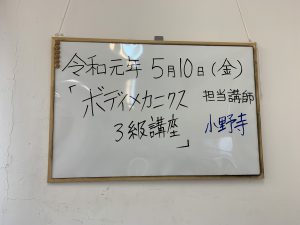 令和元年 5月10日(金)
「ボディメカニクス 担当講師
3級講座」 小野寺